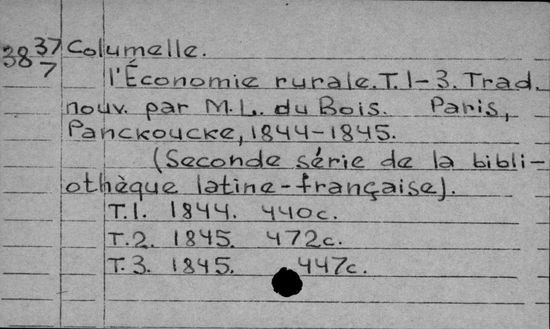 38 37/7 Columelle.
l'Économie rurale. T. 1-3. Trad.
nouv. par M. L. du Bois. Paris,
Panckoucke, 1844-1845.
(Seconde série de la bibli-
othèque latine-française).
T. 1. 1844. 440c.
T. 2. 1845. 472c.
T. 3. 1845. 447c.